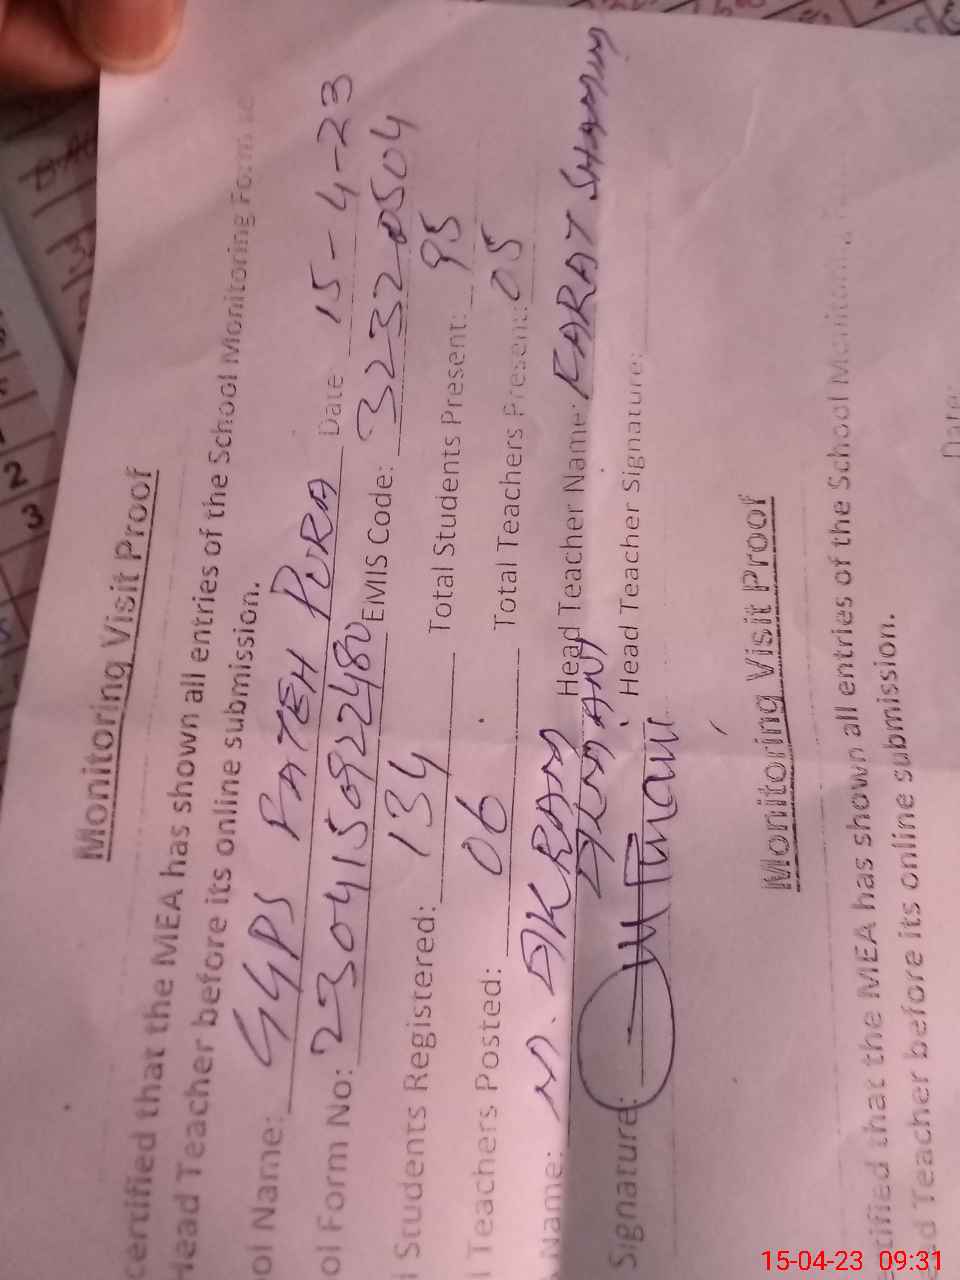 Monitoring Visit Proof
certified that the MEA has shown all entries of the School Monitoring Form
Head Teacher before its online submission.
ol Name: GGPS PATEH PURA Date 15-4-23
ol Form No: 2304150922480 EMIS Code: 32320504
l Students Registered: 134 Total Students Present: 95
l Teachers Posted: 06 Total Teachers Present: 05
Name: M. AKRAM Head Teacher Name: FARAT SHAMIM
Signature: Head Teacher Signature:
Monitoring Visit Proof
rtified that the MEA has shown all entries of the School
d Teacher before its online submission.
Date
2
3
15-04-23 09:31